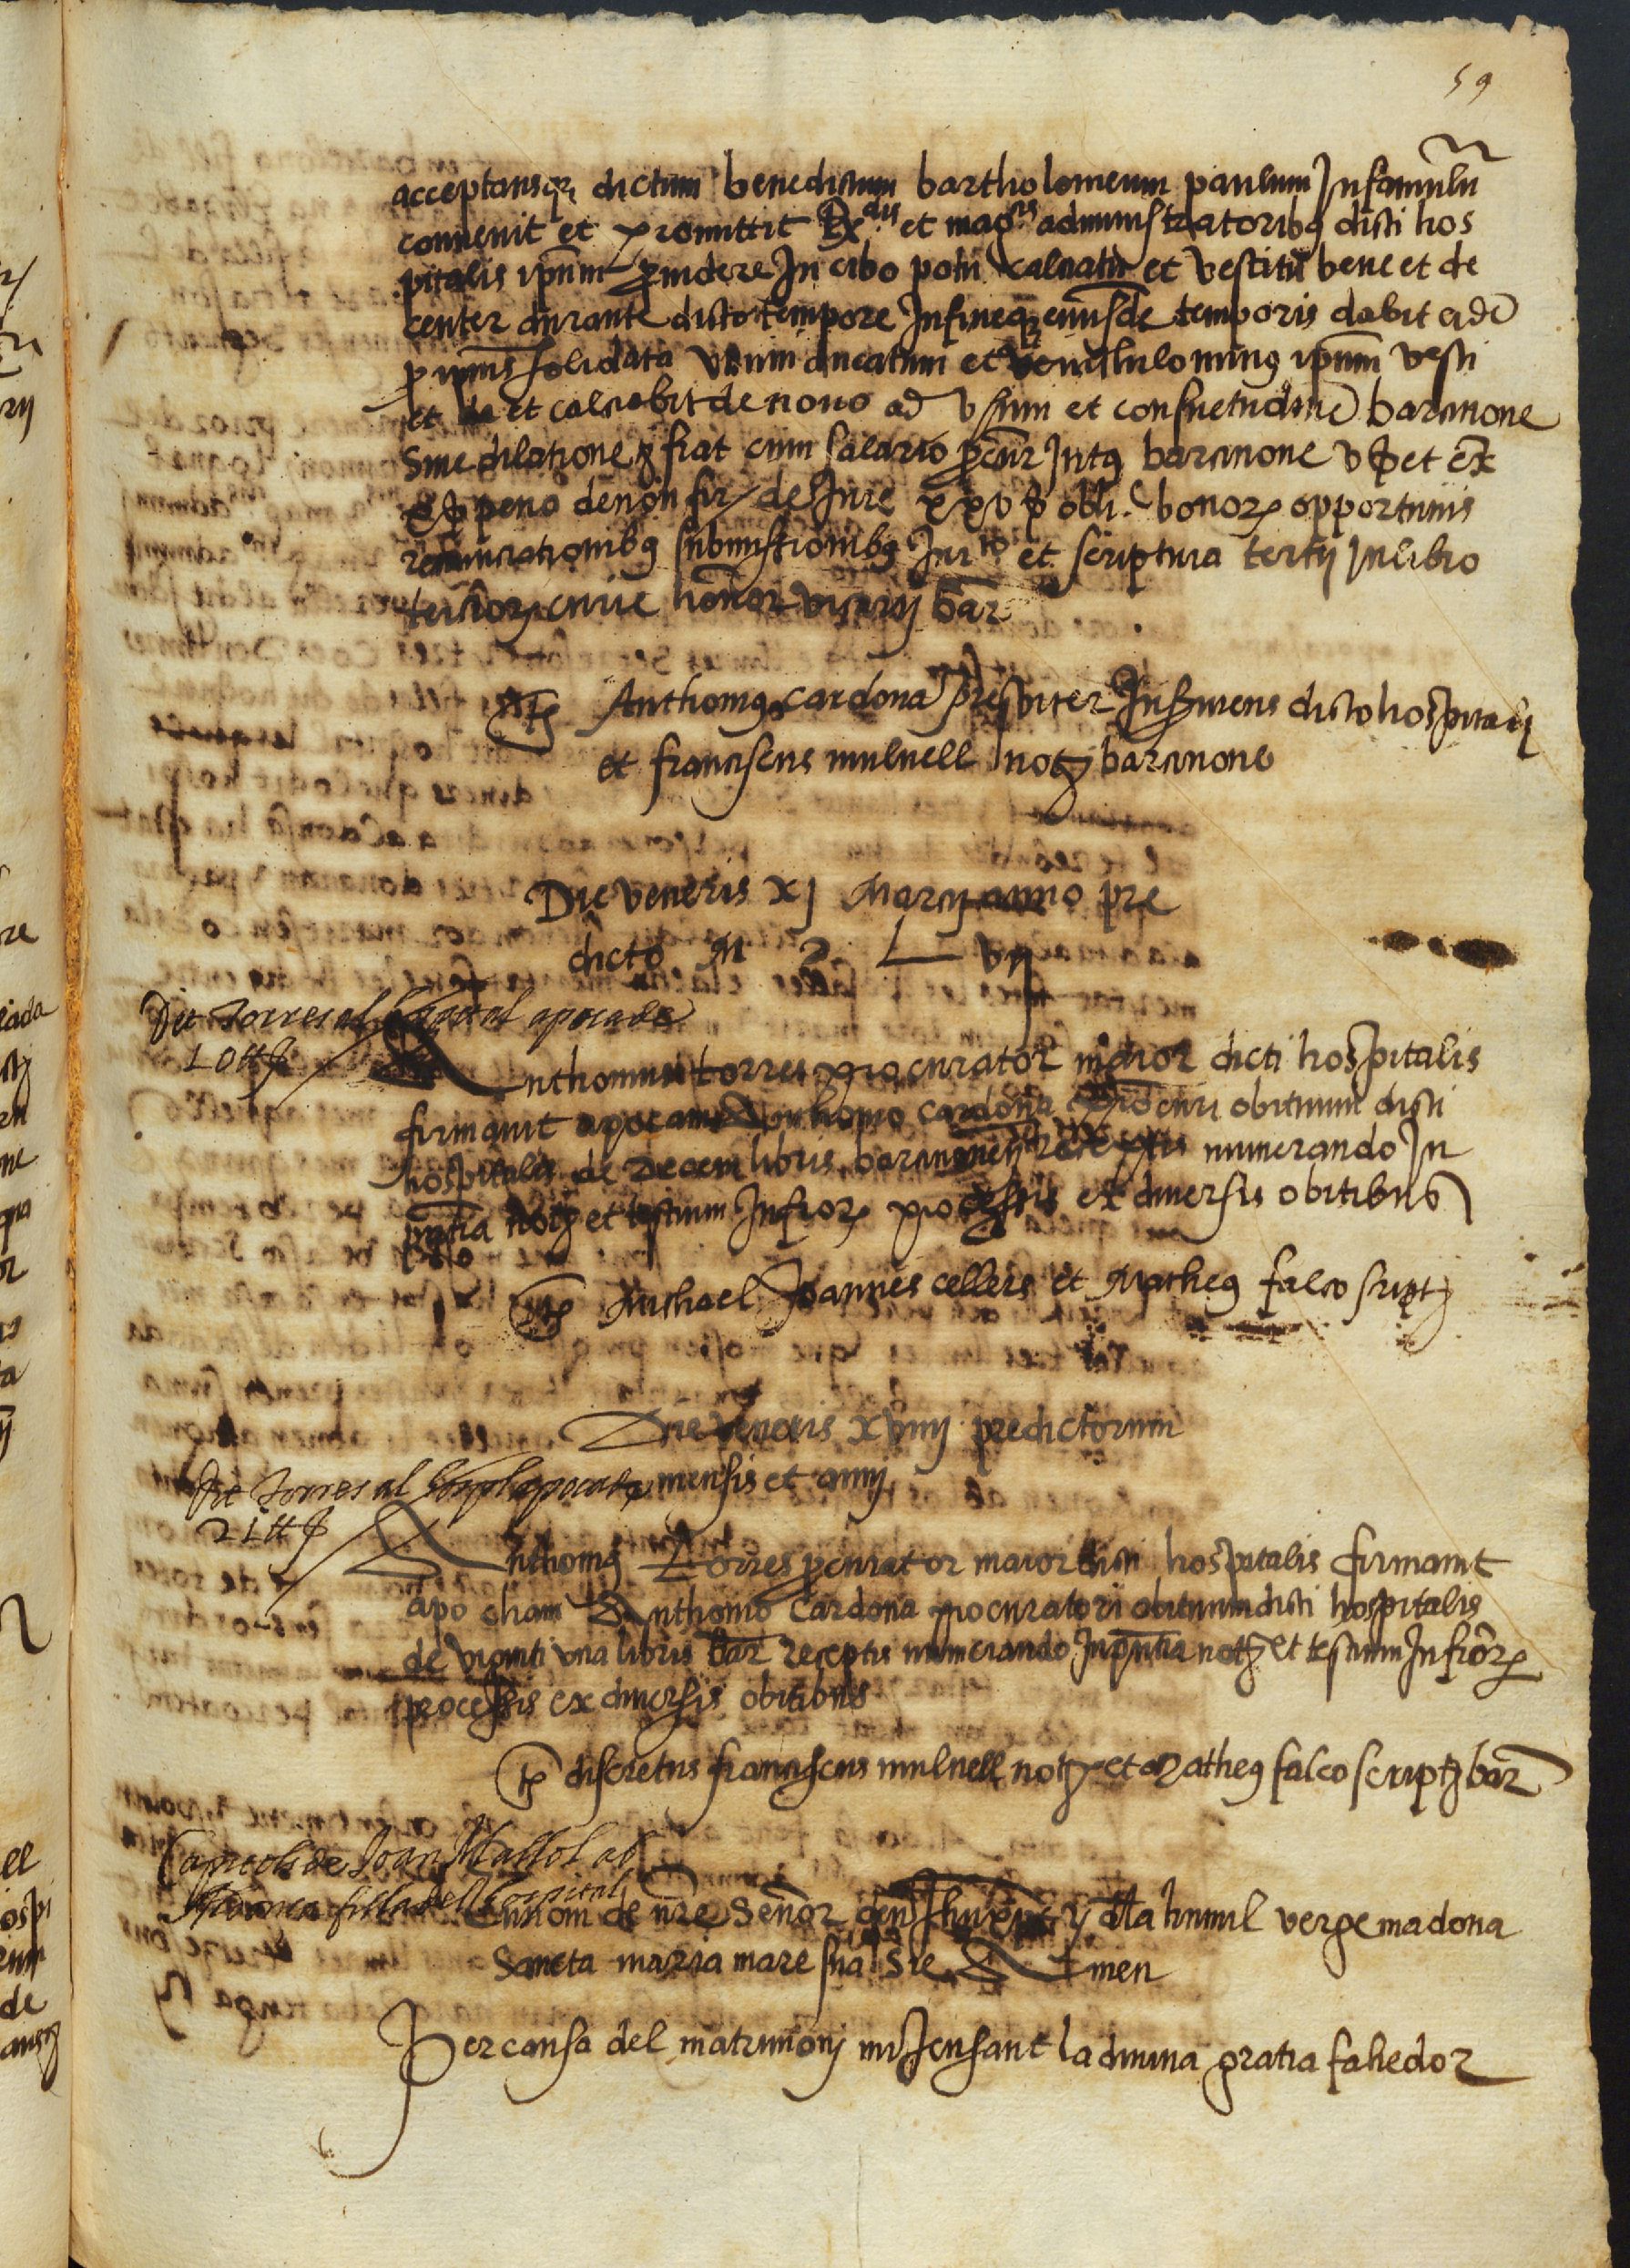 59
acceptansq3 dictum benedictum bartholomeum paulum Infamulũ
conuenit et promittit Rx.dis et mag.cis administratoribꝯ dicti hos
pitalis ipsum prouidere In cibo potu calciatu et vestitu bene et de
center durante dicto tempore Infineq3 eiusdẽ temporis dabit eidẽ
solidata vnum ducatum et nihilominꝯ ipsum vesti
et et calciabit de nouo ad vsum et consuetudinẽ barcinone
Sine dilatione fiat cum salario Intꝯ barcinone v ꝑ et ex
peno de non fir de Jure xxv ꝑ obli. bonoꝝ opportunis
renunciationibꝯ submissionibꝯ Jur.to et scriptura tertij In libro
tertioꝝ curie honor vicarij bar
Tẽ Anthoniꝯ cardona presbiter Inseruiens dicto hospitalj
et franciscus mulnell not3 barcinone
Die veneris xj Marcij anno pre
dicto M D L vij
Dit Torres al hospital apoca de
10 ℔ ẞ
Anthonius torres procurator maior dicti hospitalis
firmauit apocam Anthonio cardona procuri obituum dicti
hospitalis de Decem libris barcinonen receptis numerando In
pntia not3 et testium Infrõꝝ processis ex diuersis obitibus
Tẽ Michael Joannes cellers et Matheꝯ falco script3
Die veneris xviiij predictorum
mensis et annj
Dit Torres al hospital apoca de
21 ℔ ẞ
Anthoniꝯ Torres procurator maior dicti hospitalis firmauit
apocham Anthonio Cardona procuratori obituum dicti hospitalis
de viginti vna libris bar receptis numerando In pntia not3 et testium Infrõꝝ
processis ex diuersis obitibus
Tẽ discretus franciscus mulnell not3 et Matheꝯ falco script3 bar
Capitols de Joan Mallol ab
filla del hospital
En nom de nrẽ Señor deu Jhu xpt y dela humil verge madona
Sancta maria mare sua Sie Amen
Per causa del matrimonj mijensant la diuina gratia fahedor